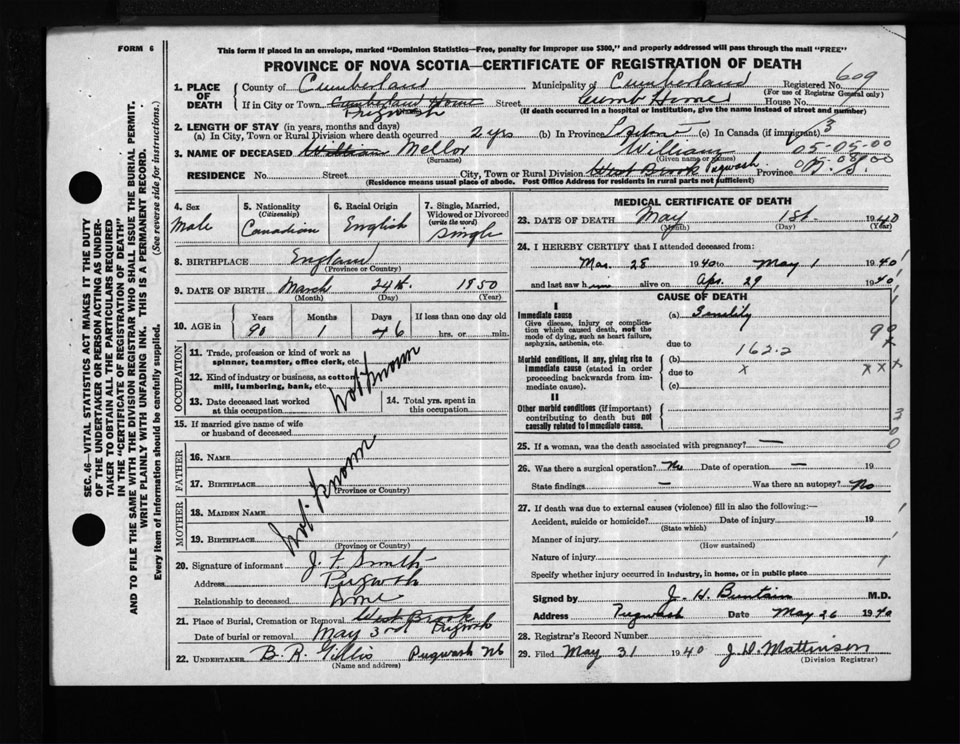 FORM 6
This form if placed in an envelope, marked "Dominion Statistics—Free, penalty for improper use $300," and properly addressed will pass through the mail "FREE"
PROVINCE OF NOVA SCOTIA—CERTIFICATE OF REGISTRATION OF DEATH
609
1. PLACE OF DEATH
County of Cumberland Municipality of Cumberland Registered No.
(For use of Registrar General only)
If in City or Town Cumberland Home Street Cumb Home House No.
Pugwash (If death occurred in a hospital or institution, give the name instead of street and number)
2. LENGTH OF STAY (in years, months and days)
(a) In City, Town or Rural Division where death occurred 2 yrs (b) In Province (c) In Canada (if immigrant) 3
3. NAME OF DECEASED William Mellor William 05-05-00
(Surname) (Given name or names)
RESIDENCE No. Street City, Town or Rural Division West Brook Pugwash Province
(Residence means usual place of abode. Post Office Address for residents in rural parts not sufficient)
SEC. 46—VITAL STATISTICS ACT MAKES IT THE DUTY
OF THE UNDERTAKER OR PERSON ACTING AS UNDER-
TAKER TO OBTAIN ALL THE PARTICULARS REQUIRED
IN THE "CERTIFICATE OF REGISTRATION OF DEATH"
AND TO FILE THE SAME WITH THE DIVISION REGISTRAR WHO SHALL ISSUE THE BURIAL PERMIT.
WRITE PLAINLY WITH UNFADING INK. THIS IS A PERMANENT RECORD.
Every item of information should be carefully supplied. (See reverse side for instructions.)
4. Sex 5. Nationality (Citizenship) 6. Racial Origin 7. Single, Married, Widowed or Divorced (write the word)
Male Canadian English Single
8. BIRTHPLACE England
(Province or Country)
9. DATE OF BIRTH March 24th 1850
(Month) (Day) (Year)
10. AGE in Years Months Days If less than one day old
90 1 hrs. or min.
OCCUPATION
11. Trade, profession or kind of work as spinner, teamster, office clerk, etc.
12. Kind of industry or business, as cotton mill, lumbering, bank, etc.
not known
13. Date deceased last worked at this occupation
14. Total yrs. spent in this occupation
15. If married give name of wife or husband of deceased
FATHER
16. NAME
17. BIRTHPLACE
(Province or Country)
not known
MOTHER
18. MAIDEN NAME
19. BIRTHPLACE
(Province or Country)
20. Signature of informant J. F. Smith
Address Pugwash
Relationship to deceased none
21. Place of Burial, Cremation or Removal West Brook
Date of burial or removal May 3rd Pugwash
22. UNDERTAKER B. R. Gillis Pugwash NS
(Name and address)
MEDICAL CERTIFICATE OF DEATH
23. DATE OF DEATH May 1st 1940
(Month) (Day) (Year)
24. I HEREBY CERTIFY that I attended deceased from:
Mar. 28 1940 to May 1 1940
and last saw him alive on Apr. 29 1940
CAUSE OF DEATH
I
Immediate cause (a) Senility
Give disease, injury or complication which caused death, not the mode of dying, such as heart failure, asphyxia, asthenia, etc.
due to
Morbid conditions, if any, giving rise to immediate cause (stated in order proceeding backwards from immediate cause).
(b) 162.2
due to x x x x
(c)
II
Other morbid conditions (if important) contributing to death but not causally related to immediate cause.
25. If a woman, was the death associated with pregnancy? —
26. Was there a surgical operation? No Date of operation — 19
State findings — Was there an autopsy? No
27. If death was due to external causes (violence) fill in also the following:—
Accident, suicide or homicide? Date of injury 19
(State which)
Manner of injury
(How sustained)
Nature of injury
Specify whether injury occurred in industry, in home, or in public place
Signed by J. H. Buntain M.D.
Address Pugwash Date May 26 1940
28. Registrar's Record Number
29. Filed May 31 1940 J D Mattinson
(Division Registrar)